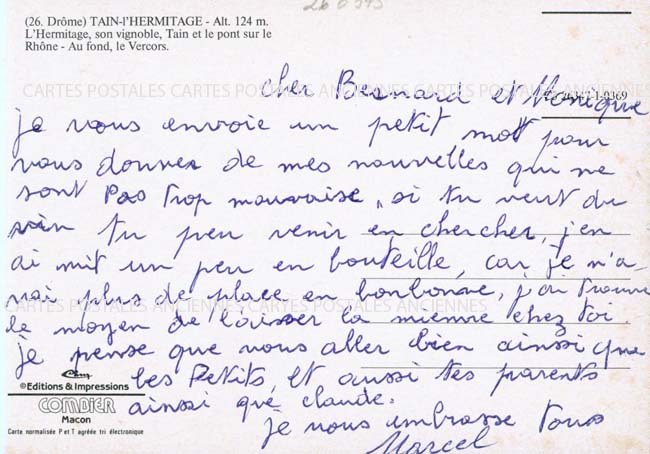 26 0393
(26. Drôme) TAIN-l'HERMITAGE - Alt. 124 m.
L'Hermitage, son vignoble, Tain et le pont sur le
Rhône - Au fond, le Vercors.
CARTES POSTALES ANCIENNES CARTES POSTALES ANCIENNES
1-0369
cher Besnard et Monique
je vous envoie un petit mott pour
vous donner de mes nouvelles qui ne
sont Pas trop mauvaise, si tu veut du
vin tu peu venir en chercher, j'en
ai mit un peu en bouteille, car je n'a-
vai plus de place en bonbonne, j'ai trouve
CARTES POSTALES ANCIENNES CARTES POSTALES ANCIENNES
le moyen de laisser la mienne chez toi
je pense que vous aller bien ainsi que
les Petits, et aussi tes parents
©Editions & Impressions
COMBIER
ainsi que claude.
Macon
je vous embrasse tous
Carte normalisée P et T agréée tri électronique
Marcel